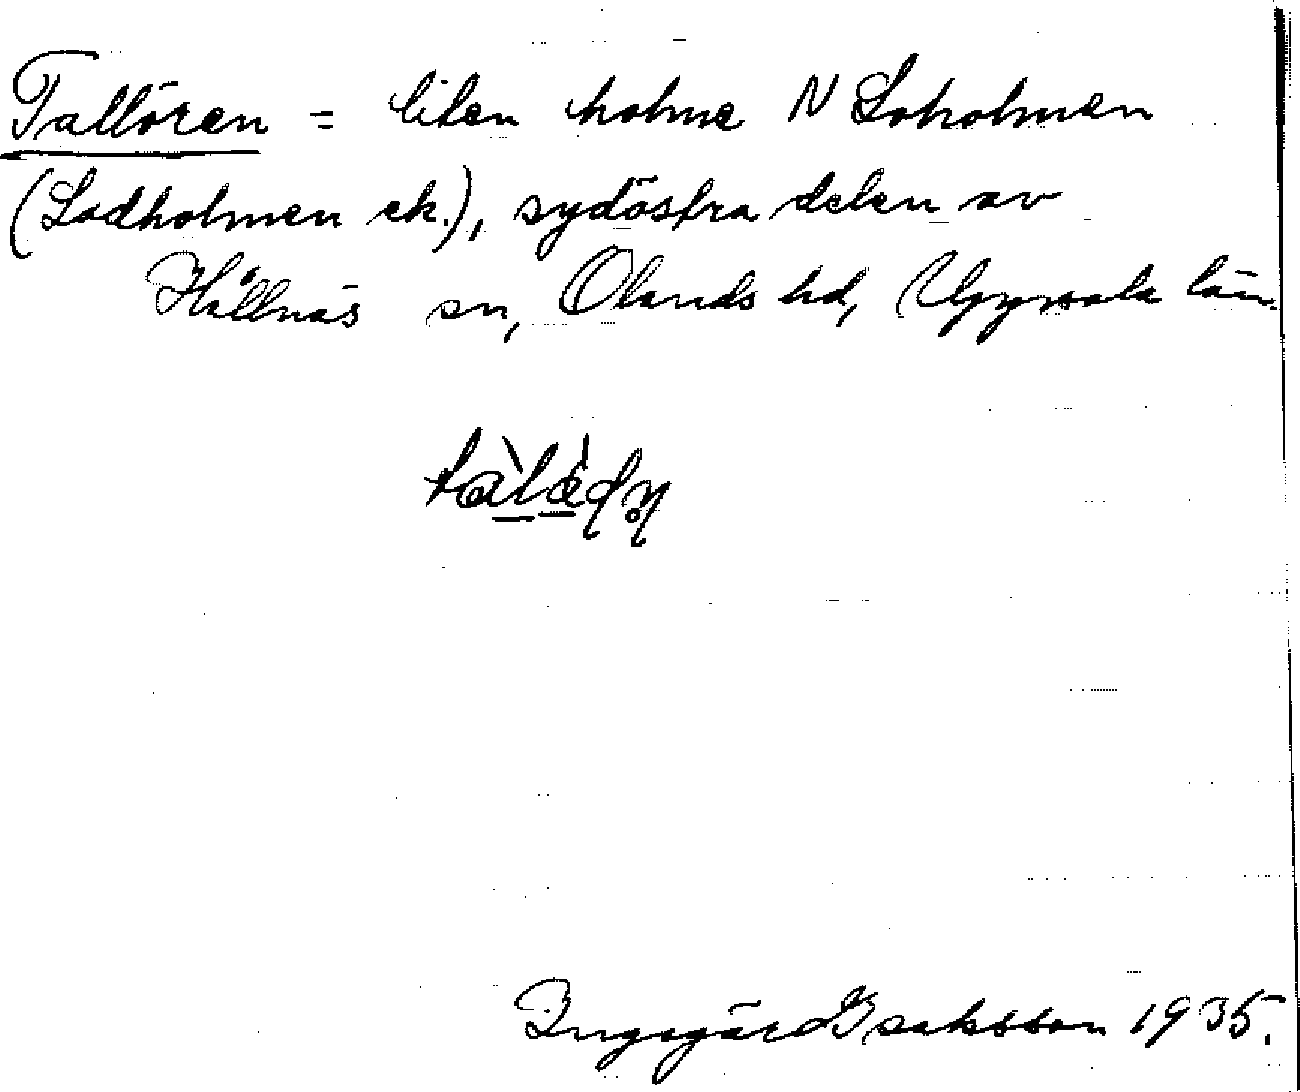 Tallören = liten holme N Loholmen
(Lodholmen ek.), sydöstra delen av
Hållnäs sn, Olands hd, Uppsala län.
Ingegärd Isaksson 1935.